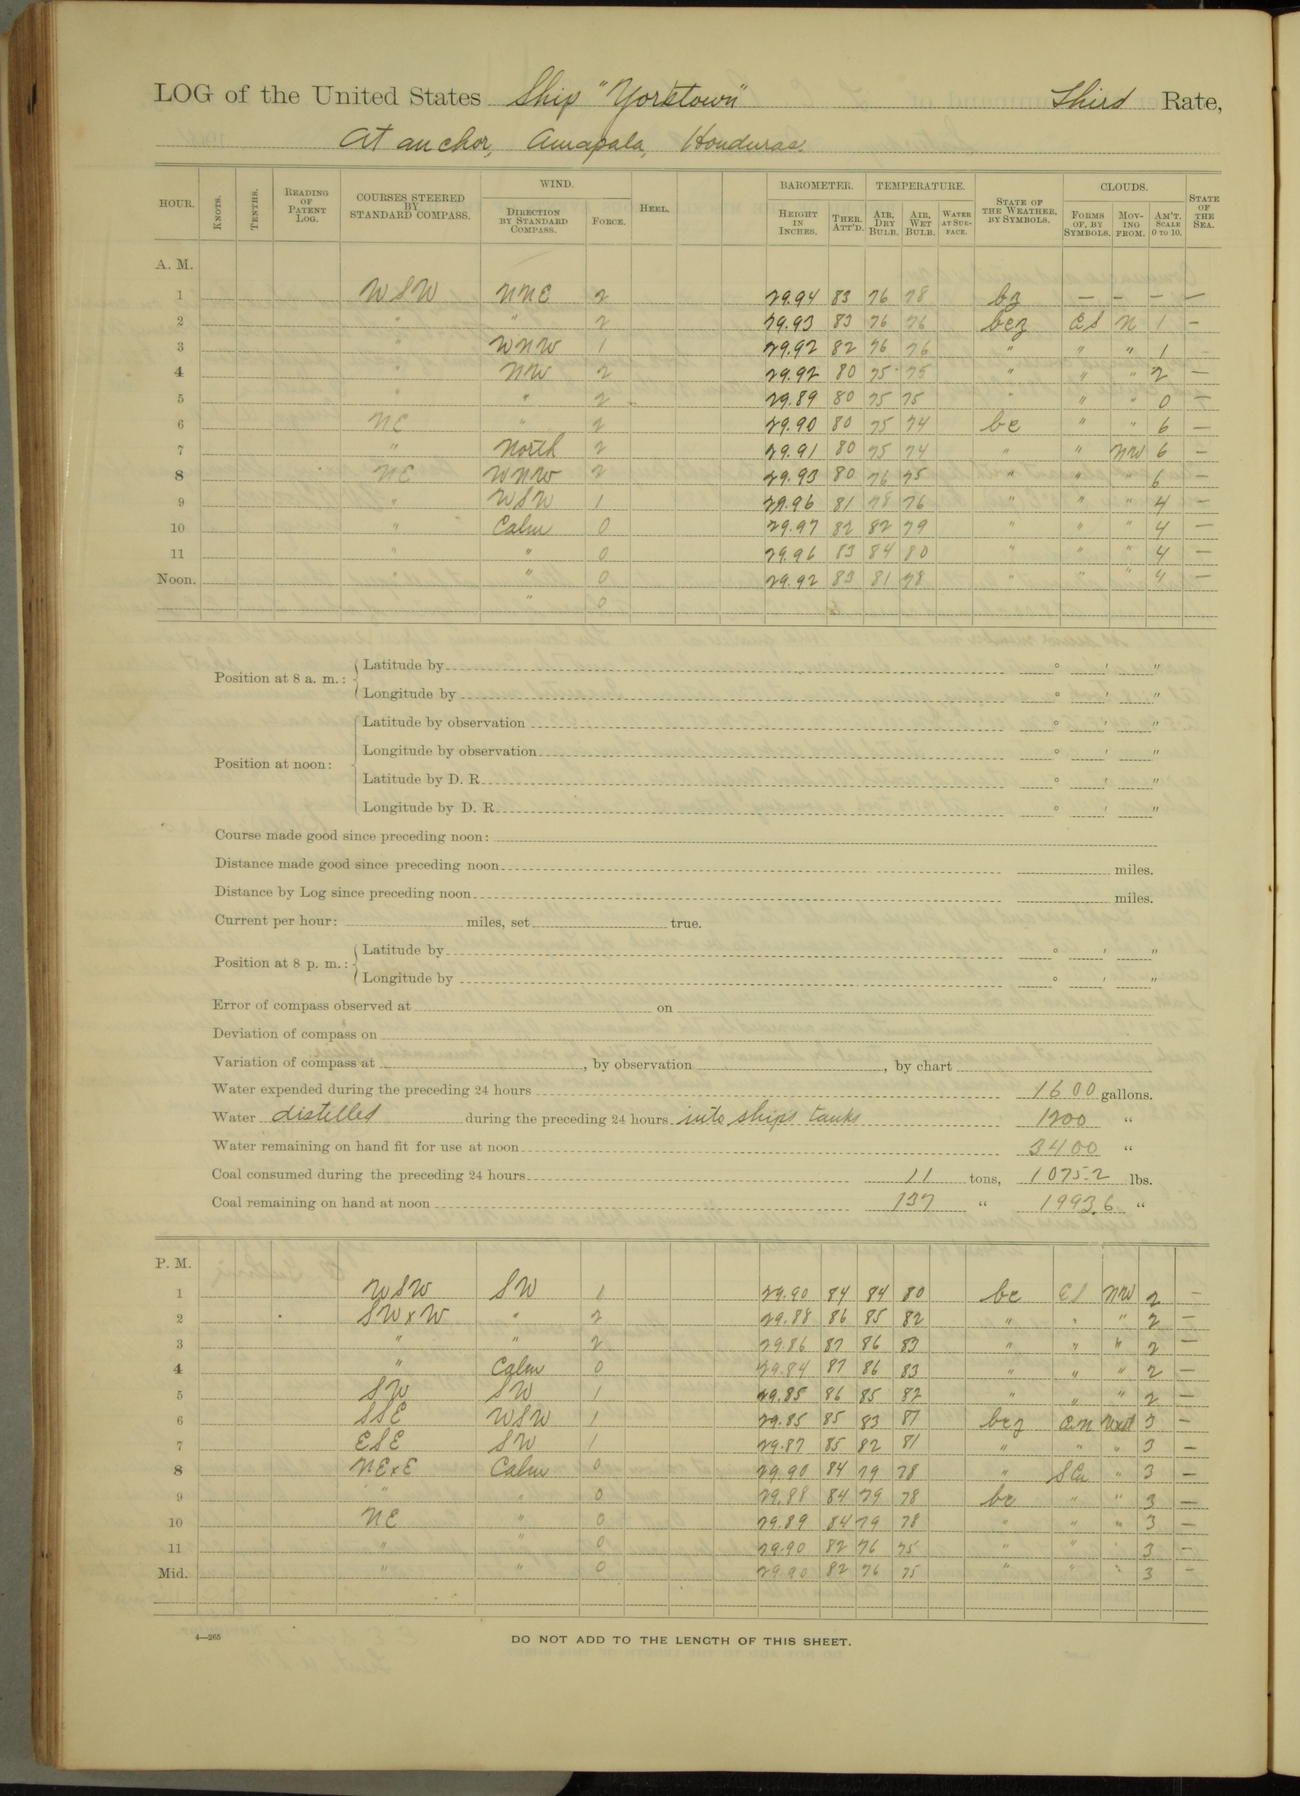 LOG of the United States Ship "Yorktown" Third Rate,
At anchor, Amapala, Honduras.
HOUR. KNOTS. TENTHS. READING OF PATENT LOG. COURSES STEERED BY STANDARD COMPASS. WIND. DIRECTION BY STANDARD COMPASS. FORCE. HEEL. BAROMETER. HEIGHT IN INCHES. THER. ATT'D. TEMPERATURE. AIR, DRY BULB. AIR, WET BULB. WATER AT SURFACE. STATE OF THE WEATHER, BY SYMBOLS. CLOUDS. FORMS OF, BY SYMBOLS. MOVING FROM. AM'T. SCALE 0 TO 10. STATE OF THE SEA.
A. M.
1 WSW NNE 2 29.94 83 76 78 bz — — — —
2 " " 2 29.93 83 76 76 bcz CS N 1 —
3 " WNW 1 29.92 82 76 76 " " " 1 —
4 " NW 2 29.92 80 75 75 " " " 2 —
5 " " 2 29.89 80 75 75 " " " 0 —
6 NE " 2 29.90 80 75 74 bc " " 6 —
7 " North 2 29.91 80 75 74 " " NW 6 —
8 NE WNW 2 29.93 80 76 75 " " " 6 —
9 " WSW 1 29.96 81 78 76 " " " 4 —
10 " Calm 0 29.97 82 82 79 " " " 4 —
11 " " 0 29.96 83 84 80 " " " 4 —
Noon. " 0 29.92 83 81 78 " " " 4 —
" 0
Position at 8 a. m.: Latitude by ° ' "
Longitude by ° ' "
Position at noon: Latitude by observation ° ' "
Longitude by observation ° ' "
Latitude by D. R. ° ' "
Longitude by D. R. ° ' "
Course made good since preceding noon:
Distance made good since preceding noon miles.
Distance by Log since preceding noon miles.
Current per hour: miles, set true.
Position at 8 p. m.: Latitude by ° ' "
Longitude by ° ' "
Error of compass observed at on
Deviation of compass on
Variation of compass at , by observation , by chart
Water expended during the preceding 24 hours 1600 gallons.
Water distilled during the preceding 24 hours into ships tanks 1200 "
Water remaining on hand fit for use at noon 3400 "
Coal consumed during the preceding 24 hours 11 tons, 1075.2 lbs.
Coal remaining on hand at noon 137 " 1993.6 "
P. M.
1 WSW SW 1 29.90 84 84 80 bc CS NW 2 —
2 SWxW " 2 29.88 86 85 82 " " " 2 —
3 " " 2 29.86 87 86 83 " " " 2 —
4 " Calm 0 29.84 87 86 83 " " " 2 —
5 SW SW 1 29.85 86 85 82 " " " 2 —
6 SSE WSW 1 29.85 85 83 81 bcz West 3 —
7 ESE SW 1 29.87 85 82 81 " " " 3 —
8 NExE Calm 0 29.90 84 79 78 " SCu " 3 —
9 " " 0 29.88 84 79 78 bc " " 3 —
10 NE " 0 29.89 84 79 78 " " " 3 —
11 " " 0 29.90 82 76 75 " " " 3 —
Mid. " " 0 29.90 82 76 75 " " " 3 —
4—265
DO NOT ADD TO THE LENGTH OF THIS SHEET.